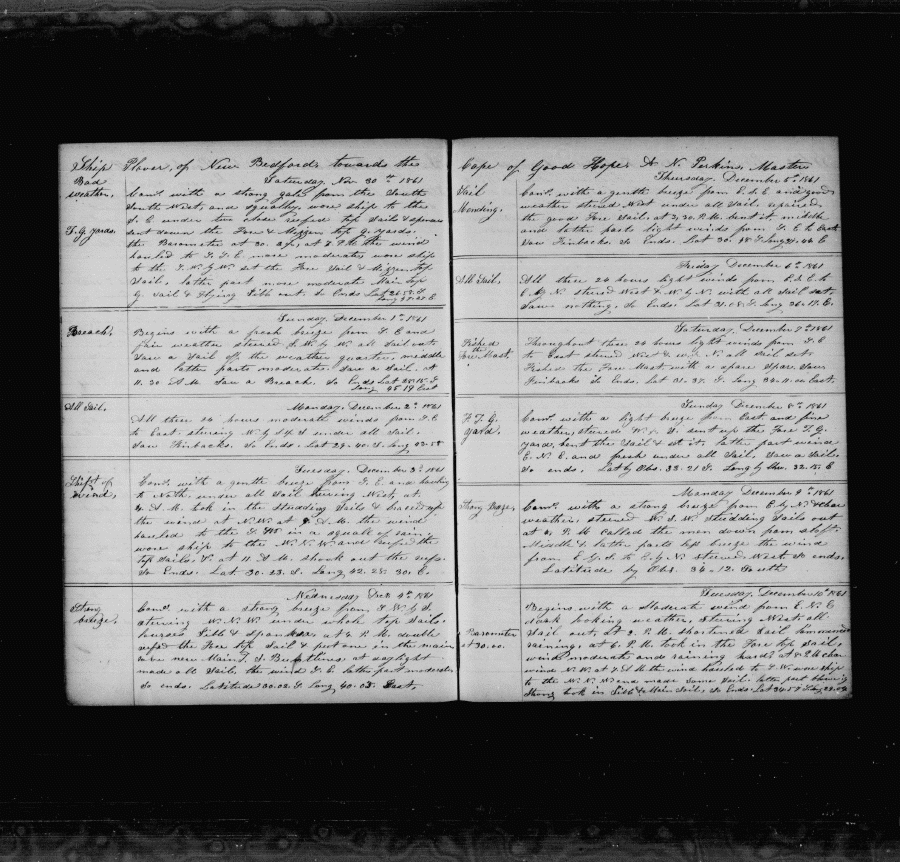 Ship Plover, of New Bedford, towards the
Saturday, Nov 30th 1861
Bad weather,
Com. with a strong gale from the South
South West, and squally, wore ship to the
S. E under two close reefed top sails & spencer
T. G. yards.
sent down the Fore & Mizzen top G. yards.
the Barometer at 30. at 8 P.M the wind
hauled to S. S. E. more moderate wore ship
to the S. W. set the Fore Sail & Mizzen top
Sail. latter part more moderate Main top
G. sail & Flying Jibb out. So Ends
Sunday, December 1st 1861
Breach,
Begins with a fresh breeze from S. E and
fair weather steered S. W. by W. all sail out
Saw a Sail off the weather quarter, middle
and latter parts moderate. Saw a sail. at
11. 30 A. M. Saw a Breach. So Ends Lat 28. 15. S
Long 45 19 East
Monday. December 2d 1861
All Sail.
All these 24 hours moderate winds from S. E
to East, steering W. by S. & S under all Sail.
Saw Finbacks. So Ends. Lat 29. 40. S. Long
Tuesday. December 3d 1861
Shift of wind,
Com. with a gentle breeze from S. E. and hauling
to North. under all Sail steering West, at
4 A. M. took in the Studding Sails & braced up
the wind at N. W. at 9 A. M. the wind
hauled to the S. W in a squall of rain
wore ship to the W. N. W. and reefed the
top Sails. at 11. A. M. shook out the reefs.
So Ends. Lat. 30. 23. S. Long 42. 28. 30. E.
Wednesday Dec 4th 1861
Strong breeze,
Com. with a strong breeze from S. W. by S.
steering W. N. W. under whole top Sails.
courses Jibb & Spanker, at 4. P. M. double
reefd the Fore top Sail & put one in the main
wore new Main at daylight
made all Sail, the wind S. E. latter part moderate
So ends. Latitude 30. 02. S Long 40. 03. East,
Cape of Good Hope, A. N. Perkins, Master
Thursday, December 5th 1861
Sail Mending.
Com. with a gentle breeze from E. S. E and good
weather steered West under all Sail. repaired
the good Fore Sail. at 2, 30, P. M. bent it, middle
and latter parts light winds from S. E to East
Saw Finbacks. So Ends. Lat 30. 48 S Long 37. 44 E
Friday December 6th 1861
All Sail.
All these 24 hours light winds from E. S. E. to
E. by N. steered West & W. by N. with all Sail set,
Saw nothing. So Ends. Lat 31. 08. S. Long 36. 17. E.
Saturday, December 7th 1861
Fished the Fore Mast
Throughout these 24 hours light winds from S. E
to East steered West & W by N all Sail set.
Fished the Fore Mast with a spare Spar. Saw
Finbacks So Ends. Lat. 31. 37. S. Long 34. 11. 00 East.
Sunday December 8th 1861
F. T. G. yard.
Com. with a light breeze from East and fine
weather, steered W. by S. sent up the Fore T. G.
yard, bent the Sail & set it, latter part wind
E. N. E and fresh under all Sail. Saw a Sail.
So ends. Lat by Obs. 33. 21 S. Long by Chro. 32. 15. E
Monday December 9th 1861
Strong Breeze,
Com. with a strong breeze from E. by N. & clear
weather, steered W. S. W. Studding Sails out
at 4, P. M called the men down from aloft.
Middle & latter parts less breeze the wind
from E. by S. to E. by N. steered West So ends.
Latitude by Obs. 34 - 12. South
Tuesday, December 10th 1861
Begins with a Moderate wind from E. N. E
dark looking weather, Steering West. all
Sail out, at 2. P. M. shortened Sail Commenced
Barometer at 30. 00.
raining, at 6. P. M. took in the Fore top Sail
wind moderate and raining hard, at 8. P. M clear
wind N. W, at 4. A M the wind hauled to S. W. wore ship
to the W. N. W and made some Sail. latter part blowing
Strong took in Jibb & Main Sail. So Ends. Lat 34. 57